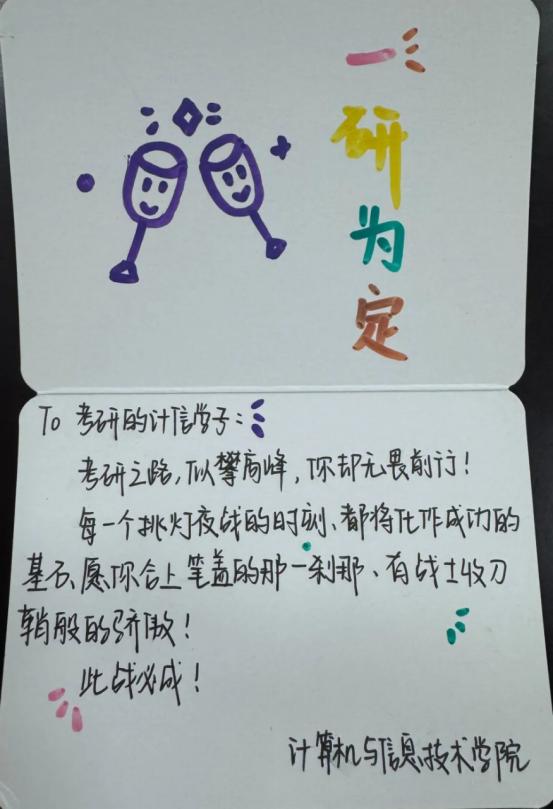 一研为定
To 考研的计信学子:
考研之路,似攀高峰,你却无畏前行!
每一个挑灯夜战的时刻、都将化作成功的
基石、愿你合上笔盖的那一刹那、有战士收刀
鞘般的骄傲!
此战必成!
计算机与信息技术学院